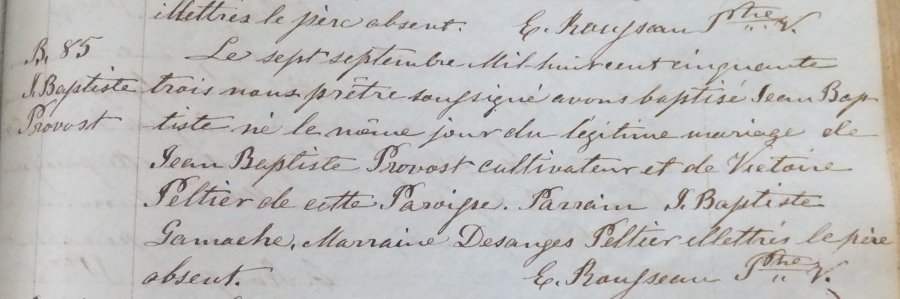 illettrés le père absent. E. Rousseau Ptre V.
B. 85
J. Baptiste
Provost
Le sept septembre Mil-huit cent cinquante
trois nous prêtre soussigné avons baptisé Jean Bap-
tiste né le même jour du légitime mariage de
Jean Baptiste Provost cultivateur et de Victoire
Peltier de cette Paroisse. Parrain J. Baptiste
Gamache, Marraine Desanges Peltier illettrés le père
absent. E. Rousseau Ptre V.